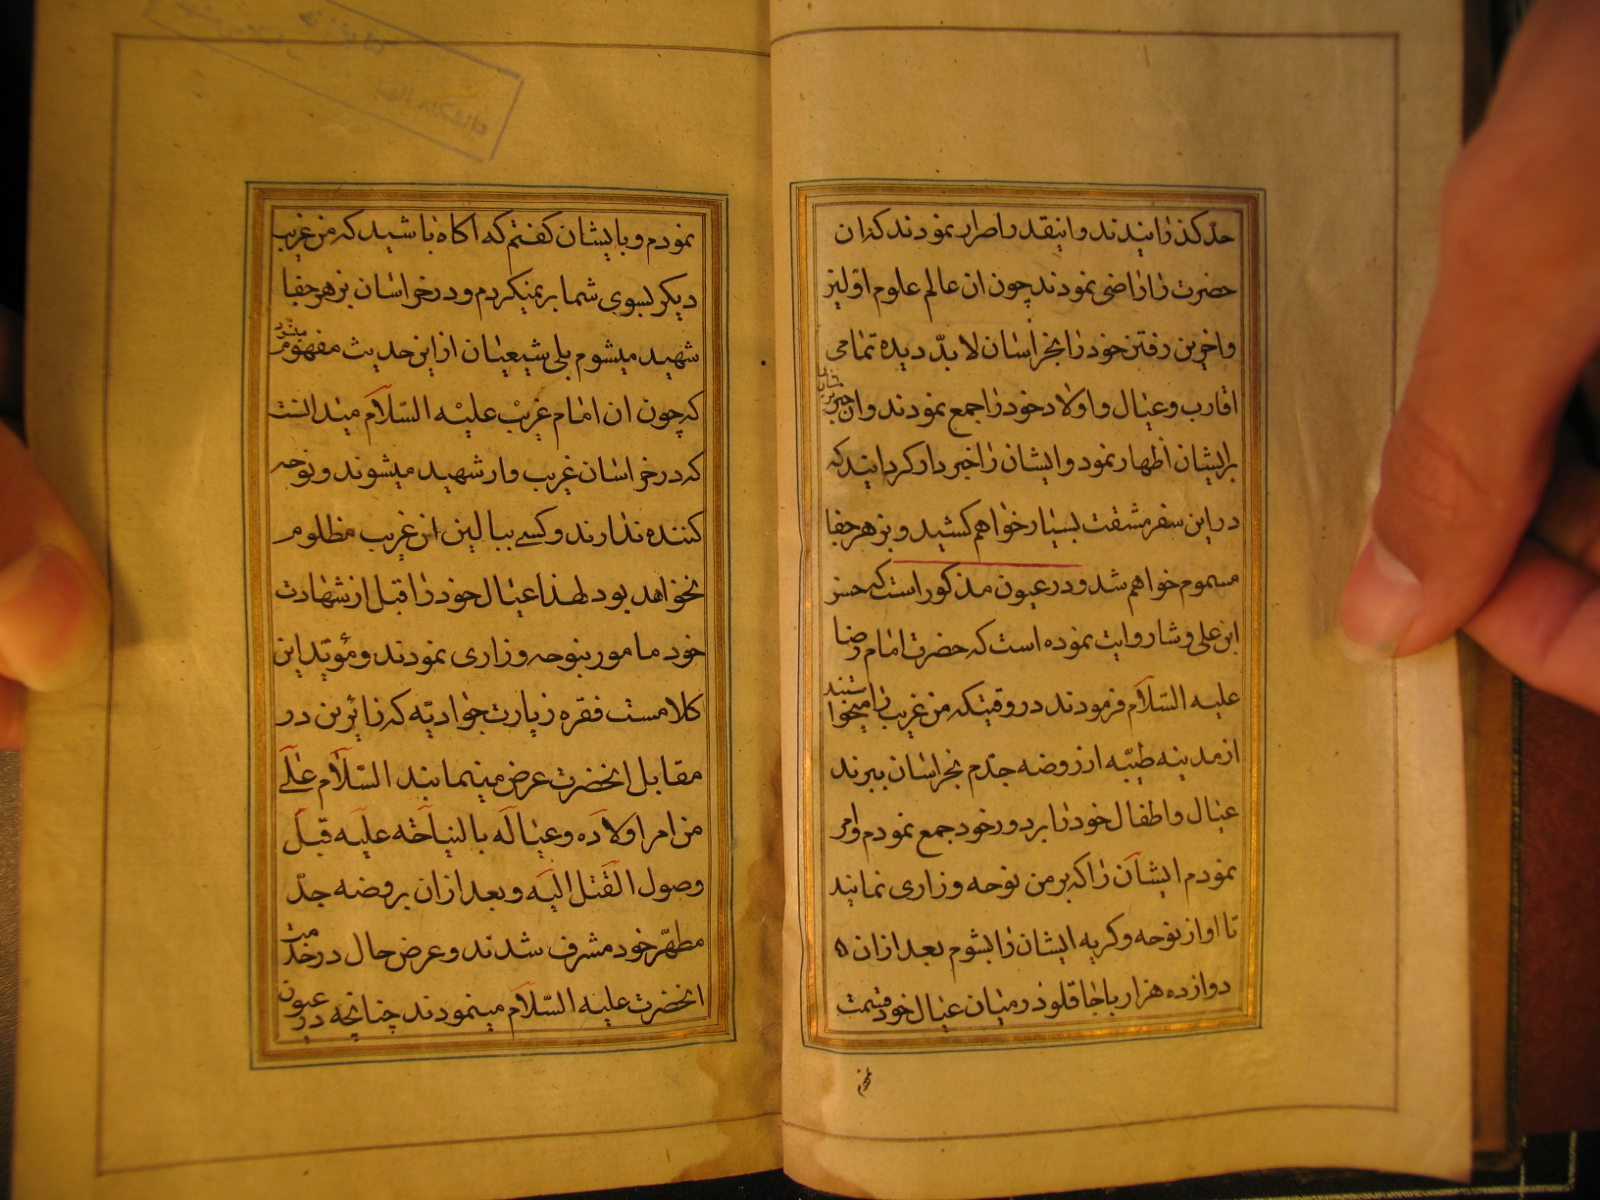 حد کذرانیدند وانیقدر اصرار نمودند که ان
حضرت را راضی نمودند چون ان عالم علوم اولین
واخرین رفتن خود را بخراسان لا بدّ دیده تمامی
اقارب وعیال و اولاد خود را جمع نمودند وان
برایشان اظهار نمود و ایشان را خبردار کردانیند که
در این سفر مشقت بسیار خواهم کشید و بزهر جفا
مسموم خواهم شد و در عیون مذکور است که حسن
ابن علی وشا روایت نموده است که حضرت امام رضا
علیه السّلام فرمودند در وقتیکه من غریب را میخواستند
از مدینه طیّبه از روضه جدّم بخراسان ببرند
عیال و اطفال خود را بر دور خود جمع نمودم وامر
نمودم ایشان را که بر من نوحه وزاری نمایند
تا اواز نوحه وکریه ایشان را بشوم بعد ازان ه
دوازده هزار در میان عیال خود قسمت
نمودم و بایشان کفتم که اکاه باشید که من غریب
دیکر بسوی شما بر نمیکردم و در خراسان بزهر جفا
شهید میشوم بلی شیعیان از این حدیث مفهوم میشود
که چون ان امام غریب علیه السّلام میدانست
که در خراسان غریب وار شهید میشوند و نوحه
کننده ندارند و کسی ببالین ان غریب مظلوم
نخواهد بود لهذا عیال خود را قبل از شهادت
خود مامور بنوحه وزاری نمودند و مؤیّد این
کلامست فقره زیارت جوادیّه که زائرین در
مقابل انحضرت عرض مینمایند السّلام علی
من امر اولاده وعیاله بالنیاحة علیه قبل
وصول القتل الیه و بعد ازان بروضه جدّ
مطهّر خود مشرف شدند و عرض حال در خدمت
انحضرت علیه السّلام مینمودند چنانچه در عیون